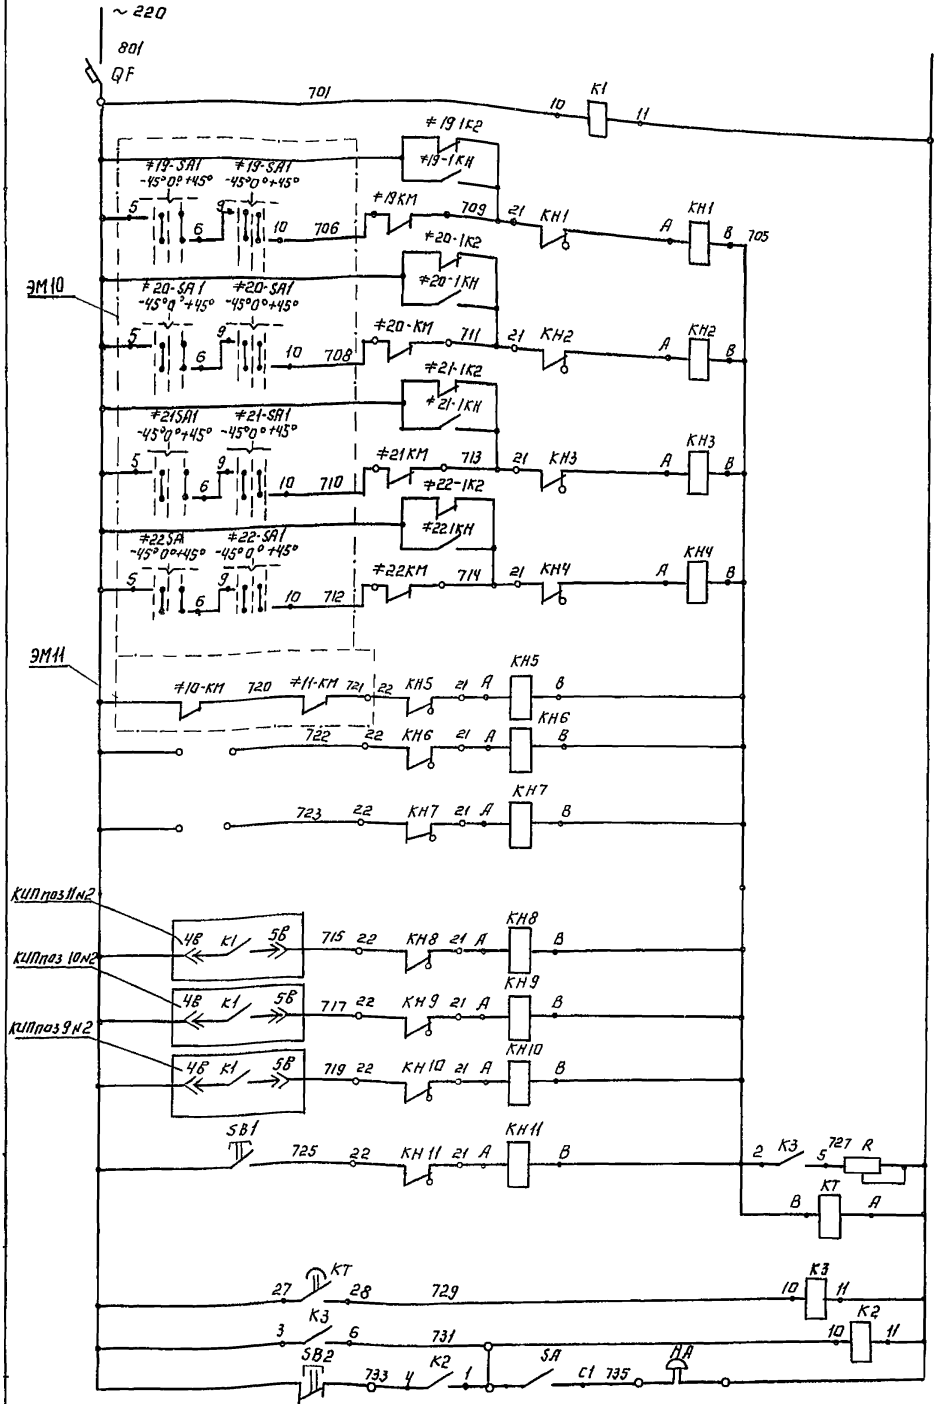 ~ 220
801
QF
701
10 K1 11
≠19 1К2
≠19-1КН
≠19-SA1 ≠19-SA1
-45°0°+45° -45°0°+45°
5 6 9 10 706 ≠19КМ 709 21 КН1 А КН1 В 705
ЭМ10
≠20-1К2
≠20-1КН
≠20-SA1 ≠20-SA1
-45°0°+45° -45°0°+45°
5 6 9 10 708 ≠20-КМ 711 21 КН2 А КН2 В
≠21-1К2
≠21-1КН
≠21SA1 ≠21-SA1
-45°0°+45° -45°0°+45°
5 6 9 10 710 ≠21КМ 713 21 КН3 А КН3 В
≠22-1К2
≠221КН
≠22SA ≠22-SA1
-45°0°+45° -45°0°+45°
5 6 9 10 712 ≠22КМ 714 21 КН4 А КН4 В
ЭМ11
≠10-КМ 720 ≠11-КМ 721 22 КН5 21 А КН5 В
722 22 КН6 21 А КН6 В
723 22 КН7 21 А КН7 В
КИП поз 11 N2
4В К1 5В 715 22 КН8 21 А КН8 В
КИП поз 10 N2
4В К1 5В 717 22 КН9 21 А КН9 В
КИП поз 9 N2
4В К1 5В 719 22 КН10 21 А КН10 В
SB1 725 22 КН11 21 А КН11 В 2 К3 5 727 R
В КТ А
27 КТ 28 729 10 К3 11
3 К3 6 731 10 К2 11
SB2 733 4 К2 1 SA C1 735 НА